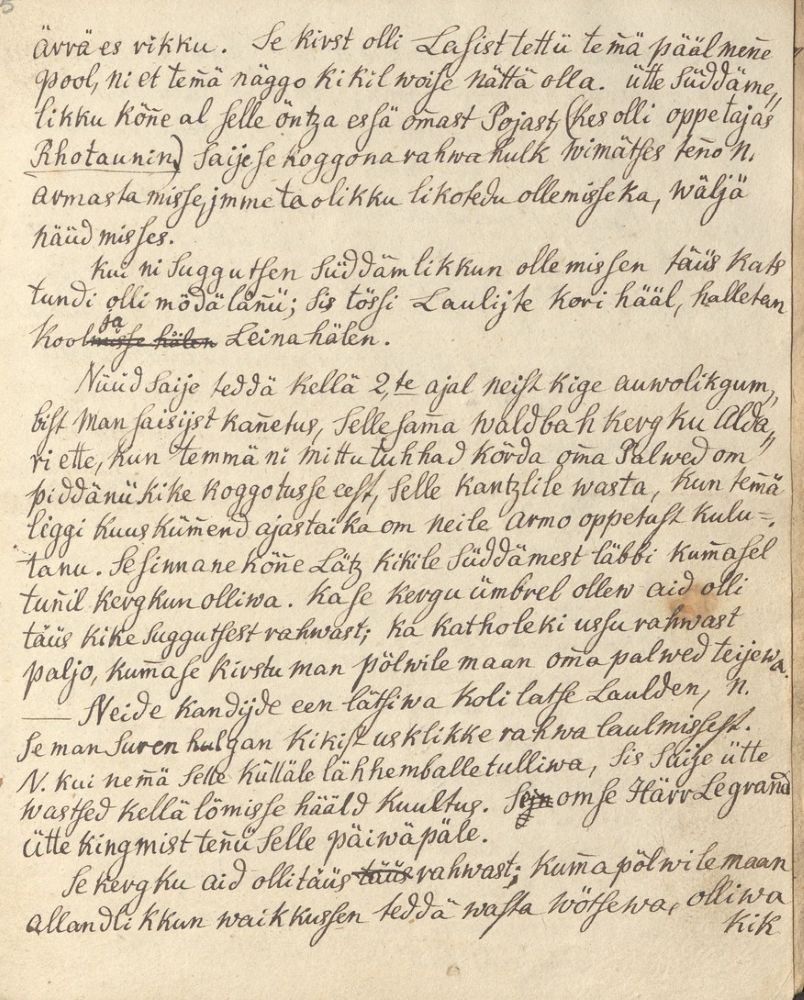 5
ärrä es rikku. Se kirst olli Lasist tettü tem̃ä pääl men̄e
pool, ni et tem̃ä näggo kikil woise nättä olla. ütte Süddäme„
likku kön̄e al selle öntza essä om̃ast Pojast, (kes olli oppetajas
Rhotaunin) saije se koggona rahwa hulk wimätses ten̄o n.
armasta misse, immeta olikku likotedu ollemisse ka, wäljä
häüdmisses.
Kui ni Suggutsen Süddämlikkun ollemissen täüs kats
tundi olli mödä län̄ü; sis tössi Laulijte kori hääl, halletan
koolja misse hälen Leina hälen.
Nüüd saije teddä kellä 2,te ajal neist kige auwolikgum„
bist Man saisijst kan̄etus, Selle sam̃a waldbah kergku Alda„
ri ette, kun temmä ni mittu tuhhad kõrda om̃a Palwed om
piddänü kike koggotusse eest, Selle kantzlile wasta, kun tem̃ä
liggi kuus küm̃end ajastaika om neile armo oppetust kulu=
tanu. Sesinnane kön̄e Lätz kikile Süddämest läbbi kum̃asel
tun̄il kergkun olliwa. Ka se kergu ümbrel ollew aid olli
täüs kike suggutsest rahwast; ka katholeki ussu rahwast
paljo, kum̃a se kirstu man pölwile maan om̃a palwed teijewa.
— Neide kandijde een lätsiwa koli latse Laulden, n.
se man suren hulgan kikist usklikke rahwa laulmissest.
N. kui nem̃ä selle külläle lähhemballe tulliwa, sis saije ütte
wastsed kellä lömisse hääld kuultus. Sejn om se Härr Legrand
ütte kingmist ten̄ü selle päiwä päle.
Se kergku aid olli täüs täüs rahwast; kum̃a pölwile maan
allandlikkun waikkussen teddä wasta wötsewa, olliwa
kik